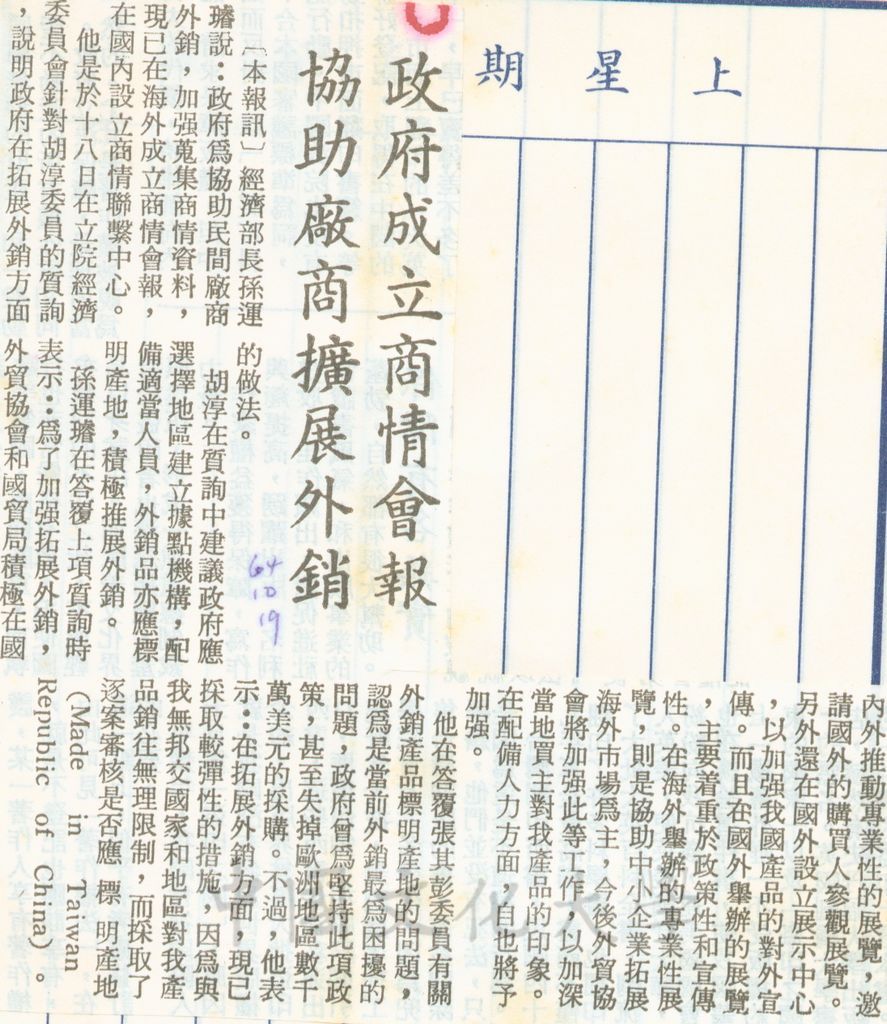 上星期
政府成立商情會報
協助廠商擴展外銷
64
10
19
〔本報訊〕經濟部長孫運
璿說：政府爲協助民間廠商
外銷，加强蒐集商情資料，
現已在海外成立商情會報，
在國內設立商情聯繫中心。
他是於十八日在立院經濟
委員會針對胡淳委員的質詢
，說明政府在拓展外銷方面
的做法。
胡淳在質詢中建議政府應
選擇地區建立據點機構，配
備適當人員，外銷品亦應標
明產地，積極推展外銷。
孫運璿在答覆上項質詢時
表示：爲了加强拓展外銷，
外貿協會和國貿局積極在國
內外推動專業性的展覽，邀
請國外的購買人參觀展覽。
另外還在國外設立展示中心
，以加强我國產品的對外宣
傳。而且在國外舉辦的展覽
，主要着重於政策性和宣傳
性。在海外舉辦的專業性展
覽，則是協助中小企業拓展
海外市場爲主，今後外貿協
會將加强此等工作，以加深
當地買主對我產品的印象。
在配備人力方面，自也將予
加强。
他在答覆張其彭委員有關
外銷產品標明產地的問題
認爲是當前外銷最爲困擾的
問題，政府曾爲堅持此項政
策，甚至失掉歐洲地區數千
萬美元的採購。不過，他表
示：在拓展外銷方面，現已
採取較彈性的措施，因爲與
我無邦交國家和地區對我產
品銷往無理限制，而採取了
逐案審核是否應 標 明產地
（Made in Taiwan
Republic of China）。
中國文化大學